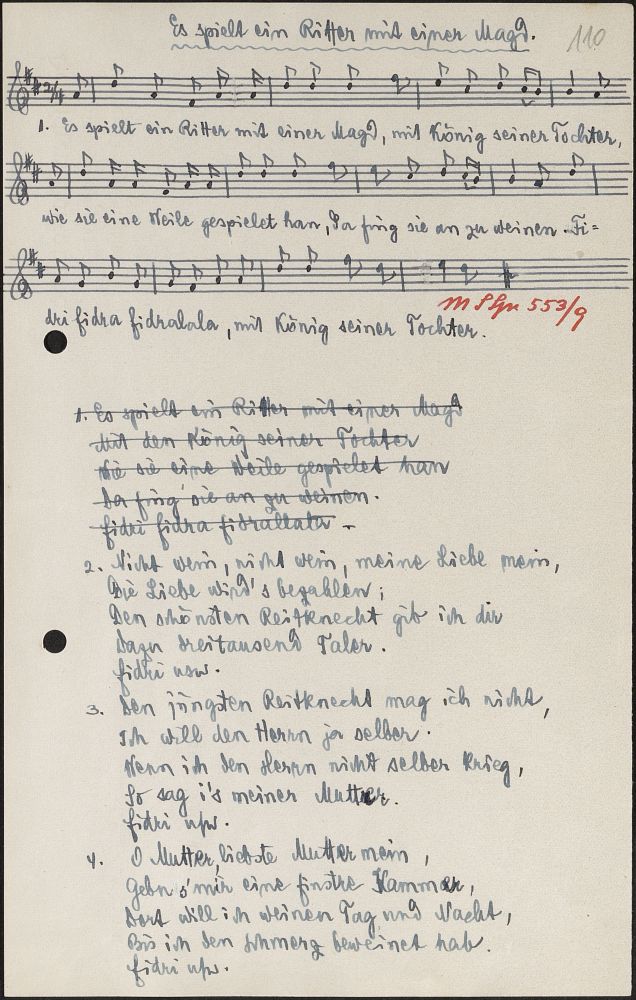 Es spielt ein Ritter mit einer Magd.
110
2/4
1. Es spielt ein Ritter mit einer Magd, mit König seiner Tochter,
wie sie eine Weile gespielet han, Da fing sie an zu weinen. Fi=
dri fidra fidralala, mit König seiner Tochter.
553/9
1. Es spielt ein Ritter mit einer Magd
Mit den König seiner Tochter
Wie sie eine Weile gespielet han
Da fing sie an zu weinen.
fidri fidra fidrallala -
2. Nicht wein, nicht wein, meine Liebe mein,
Die Liebe wird's bezahlen;
Den schönsten Reitknecht gib ich dir
Dazu dreitausend Taler.
fidri usw.
3. Den jüngsten Reitknecht mag ich nicht,
Ich will den Herrn ja selber.
Wenn ich den Herrn nicht selber krieg,
So sag i's meiner Mutter.
fidri usw.
4. O Mutter, liebste Mutter mein,
Gebn s' mir eine finstre Kammer,
Dort will ich weinen Tag und Nacht,
Bis ich den Schmerz beweinet hab.
fidri usw.